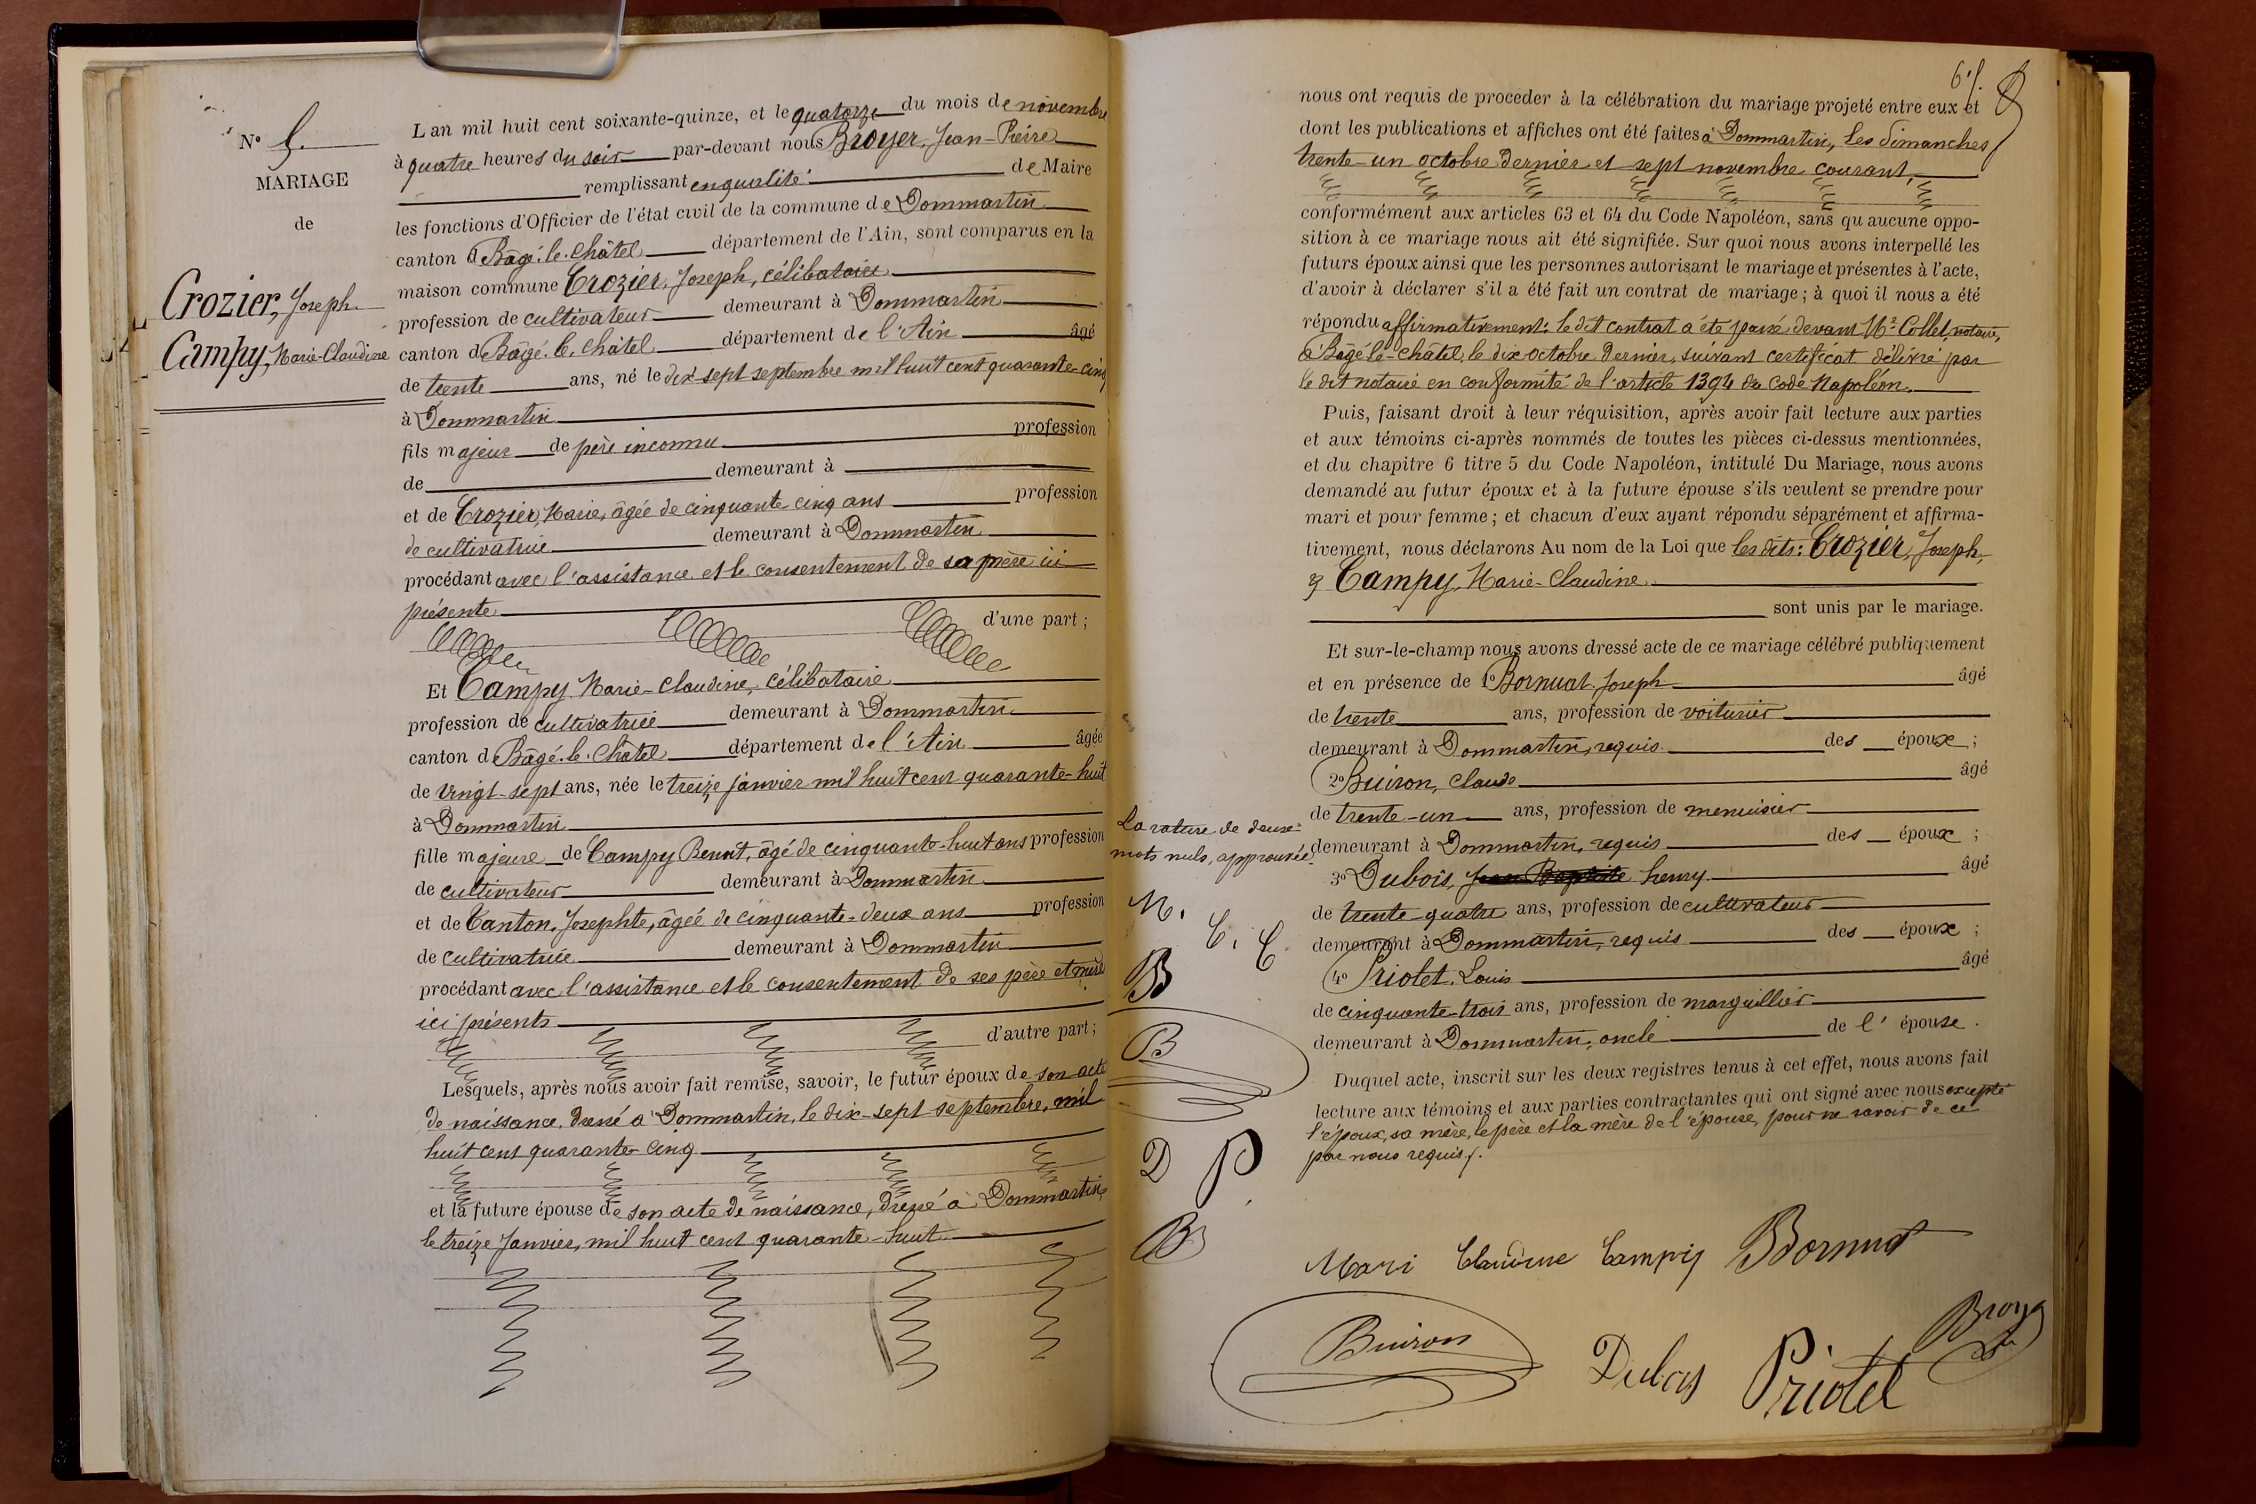 N° 5.
MARIAGE
de
Crozier, Joseph
Campy, Marie-Claudine
L'an mil huit cent soixante-quinze, et le quatorze du mois de novembre
à quatre heures du soir par-devant nous Broyer, Jean-Pierre
remplissant en qualité de Maire
les fonctions d'Officier de l'état civil de la commune de Dommartin
canton d Bâgé-le-Châtel département de l'Ain, sont comparus en la
maison commune Crozier, Joseph, célibataire
profession de cultivateur demeurant à Dommartin
canton d Bâgé-le-Châtel département de l'Ain âgé
de trente ans, né le dix-sept septembre mil huit cent quarante-cinq
à Dommartin
fils majeur de père inconnu profession
de demeurant à
et de Crozier, Marie, âgée de cinquante cinq ans profession
de cultivatrice demeurant à Dommartin
procédant avec l'assistance et le consentement de sa mère ici
présente
d'une part ;
Et Campy Marie-Claudine, célibataire
profession de cultivatrice demeurant à Dommartin
canton d Bâgé-le-Châtel département de l'Ain âgée
de vingt-sept ans, née le treize janvier mil huit cent quarante-huit
à Dommartin
fille majeure de Campy Benoît, âgé de cinquante-huit ans profession
de cultivateur demeurant à Dommartin
et de Canton, Josephte, âgée de cinquante-deux ans profession
de cultivatrice demeurant à Dommartin
procédant avec l'assistance et le consentement de ses père et mère
ici présents
d'autre part ;
Lesquels, après nous avoir fait remise, savoir, le futur époux de son acte
de naissance, dressé à Dommartin, le dix-sept septembre, mil
huit cent quarante-cinq
et la future épouse de son acte de naissance, dressé à Dommartin,
le treize Janvier, mil huit cent quarante-huit
nous ont requis de procéder à la célébration du mariage projeté entre eux et
dont les publications et affiches ont été faites à Dommartin, les dimanches
trente-un octobre dernier et sept novembre courant,
conformément aux articles 63 et 64 du Code Napoléon, sans qu'aucune oppo-
sition à ce mariage nous ait été signifiée. Sur quoi nous avons interpellé les
futurs époux ainsi que les personnes autorisant le mariage et présentes à l'acte,
d'avoir à déclarer s'il a été fait un contrat de mariage ; à quoi il nous a été
répondu affirmativement: le dit contrat a été passé devant Me Collet, notaire,
à Bâgé-le-Châtel, le dix octobre dernier, suivant certificat délivré par
le dit notaire en conformité de l'article 1394 du Code Napoléon.
Puis, faisant droit à leur réquisition, après avoir fait lecture aux parties
et aux témoins ci-après nommés de toutes les pièces ci-dessus mentionnées,
et du chapitre 6 titre 5 du Code Napoléon, intitulé Du Mariage, nous avons
demandé au futur époux et à la future épouse s'ils veulent se prendre pour
mari et pour femme ; et chacun d'eux ayant répondu séparément et affirma-
tivement, nous déclarons Au nom de la Loi que les dits: Crozier, Joseph,
& Campy, Marie-Claudine
sont unis par le mariage.
Et sur-le-champ nous avons dressé acte de ce mariage célébré publiquement
et en présence de 1° Bornuat, Joseph âgé
de trente ans, profession de voiturier
demeurant à Dommartin, requis des époux ;
2° Buiron, Claude âgé
de trente-un ans, profession de menuisier
demeurant à Dommartin, requis des époux ;
3° Dubois, Jean Baptiste henry âgé
de trente-quatre ans, profession de cultivateur
demeurant à Dommartin, requis des époux ;
4° Priolet, Louis âgé
de cinquante-trois ans, profession de marguillier
demeurant à Dommartin, oncle de l'épouse.
Duquel acte, inscrit sur les deux registres tenus à cet effet, nous avons fait
lecture aux témoins et aux parties contractantes qui ont signé avec nous excepté
l'époux, sa mère, le père et la mère de l'épouse, pour ne savoir de ce
par nous requis.
La rature de deux
mots nuls, approuvée.
M. C. C.
B
B
D P
B
Mari Claudine Campy Bornuat
Buiron Dubois Priolet Broyer